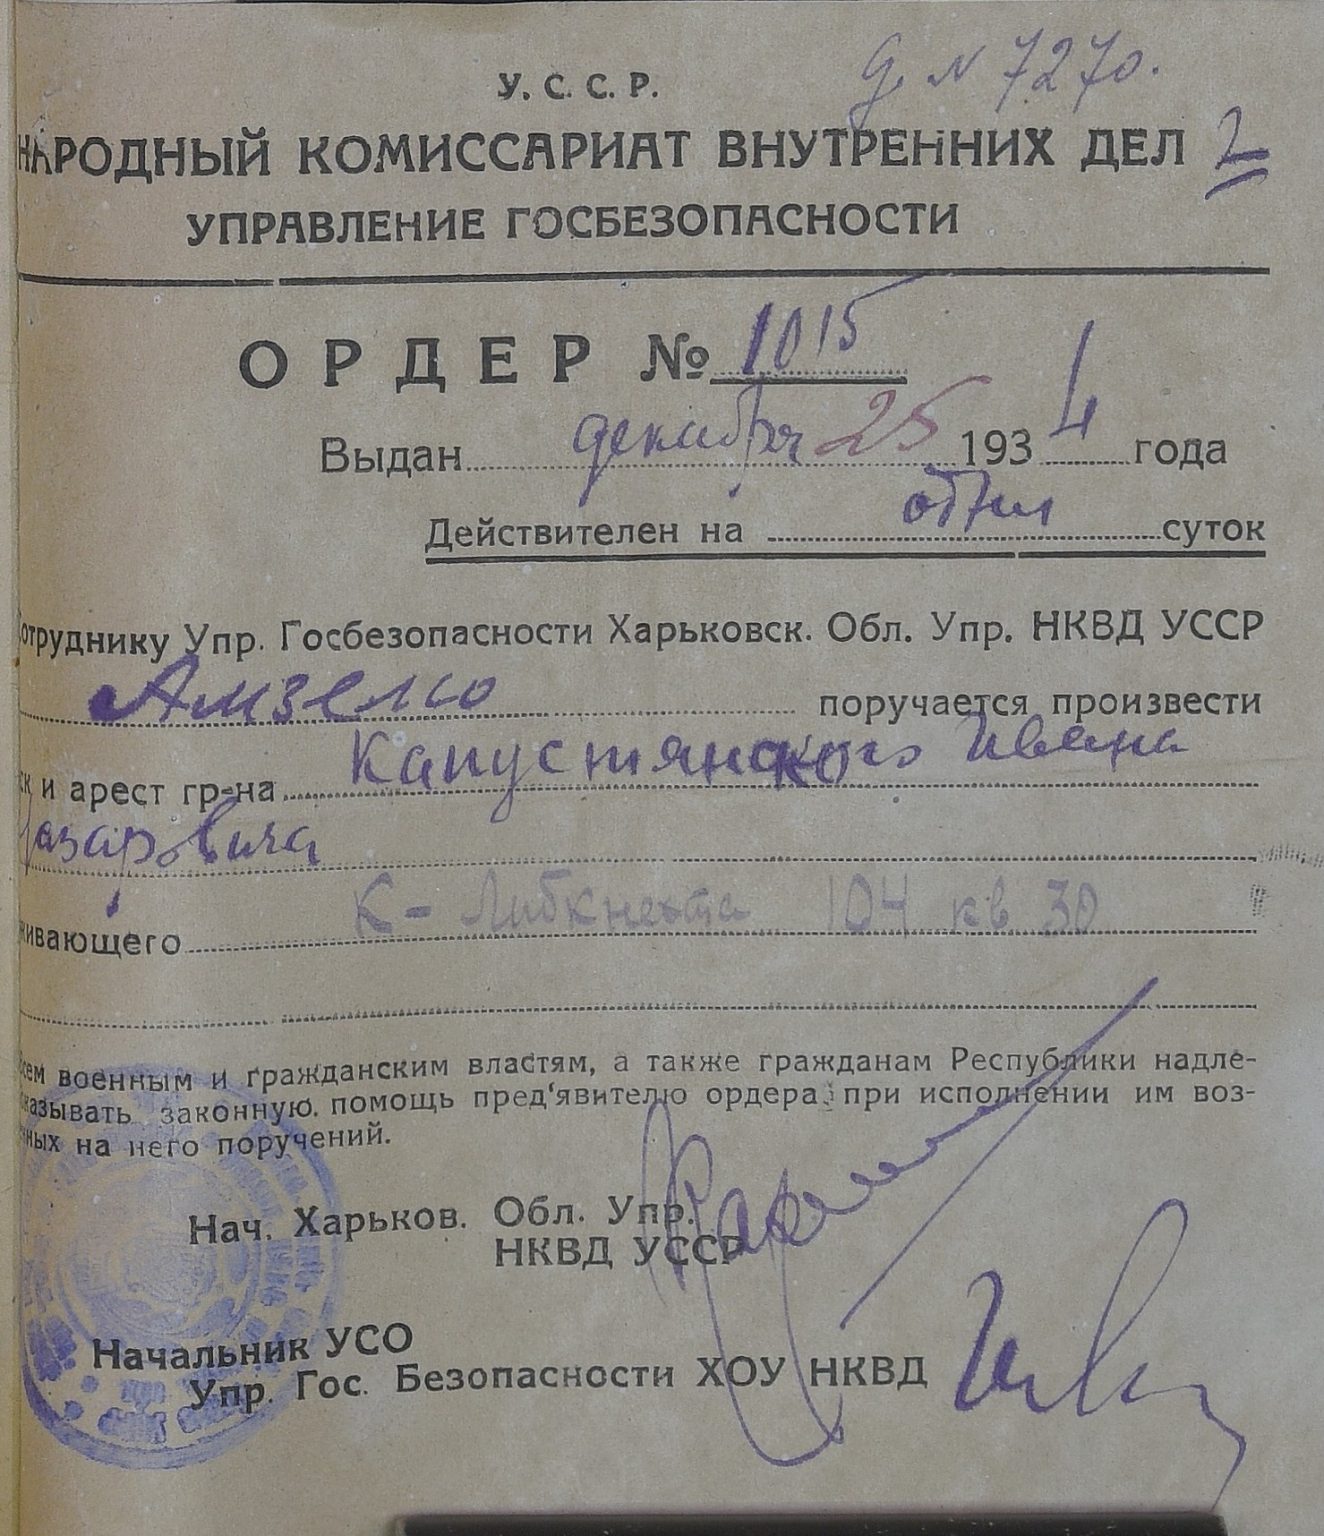 д. N 7270.
У. С. С. Р.
НАРОДНЫЙ КОМИССАРИАТ ВНУТРЕННИХ ДЕЛ 2
УПРАВЛЕНИЕ ГОСБЕЗОПАСНОСТИ
ОРДЕР № 1015
Выдан декабря 25 1934 года
Действителен на суток
отруднику Упр. Госбезопасности Харьковск. Обл. Упр. НКВД УССР
Амзелю поручается произвести
ск и арест гр-на Капустянского Ивана
Лазаровича
живающего К-Либкнехта 104 кв 30
всем военным и гражданским властям, а также гражданам Республики надле-
казывать законную помощь пред'явителю ордера при исполнении им воз-
нных на него поручений.
Нач. Харьков. Обл. Упр.
НКВД УССР
Начальник УСО
Упр. Гос. Безопасности ХОУ НКВД